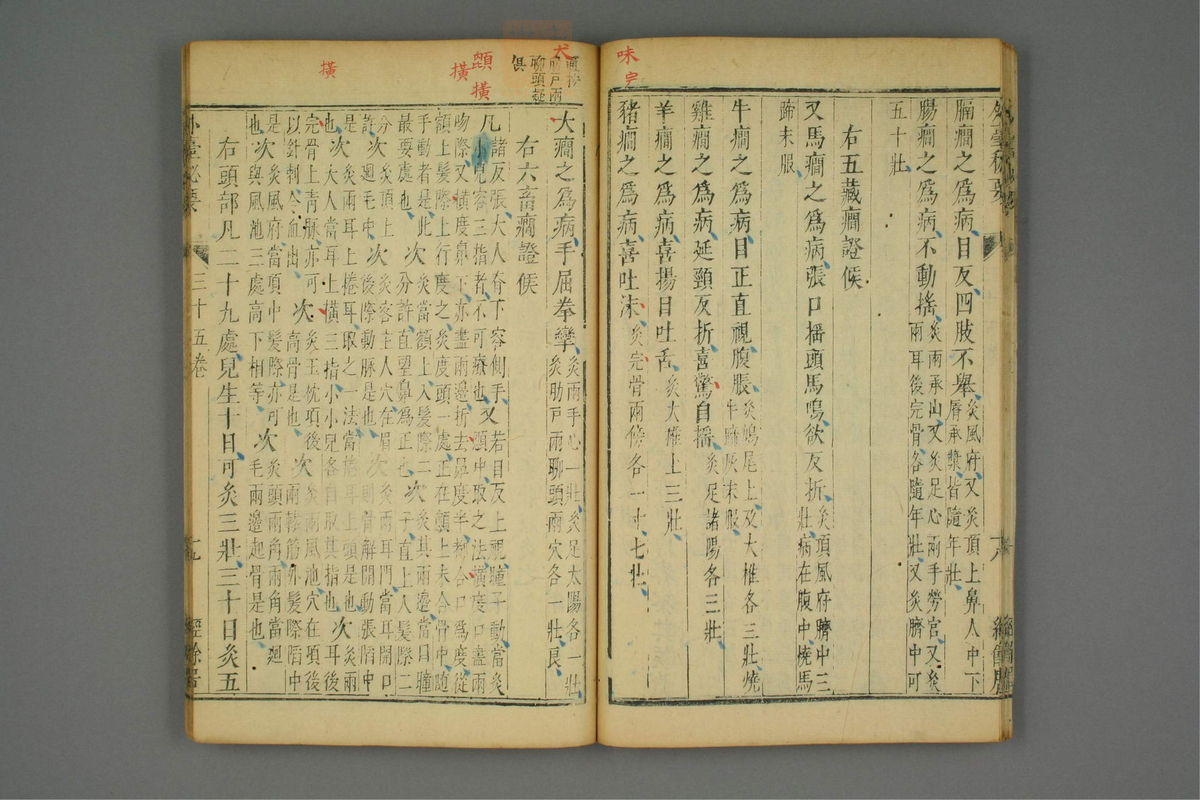 外臺秘要
膈癇之爲病目反四肢不舉灸風府又灸頂上鼻人中下脣承漿皆隨年壯
腸癇之爲病不動搖灸兩承山又灸足心兩手勞宮又灸兩耳後完骨各隨年壯又灸臍中可
五十壯
右五藏癇證候
又馬癇之爲病張口搖頭馬鳴欲反折灸項風府臍中三壯病在腹中燒馬
蹄末服
牛癇之爲病目正直視腹脹灸鳩尾上及大椎各三壯燒牛蹄灰末服
雞癇之爲病延頸反折喜驚自搖灸足諸陽各三壯
羊癇之爲病喜揚目吐舌灸大椎上三壯
豬癇之爲病喜吐沫灸完骨兩傍各一寸七壯
味
完
大癇之爲病手屈拳攣灸兩手心一壯灸足太陽各一壯灸肋戶兩聊頭兩穴各一壯良
右六畜癇證候
凡諸反張大人脊下容側手小兒容三指者不可療也又若目反上視瞳子動當灸顖中取之法橫度口盡兩
吻際又橫度鼻下亦盡兩邊折去鼻度半都合口爲度從額上髮際上行度之灸度頭一處正在顖上未合骨中隨
手動者是此最要處也次灸當額上入髮際二分許直望鼻爲正也次灸其兩邊當目瞳子直上入髮際二
分許次灸頂上迴毛中次灸客主人穴在眉後際動脉是也次灸兩耳門當耳開口則骨解開動張陷中
是也次灸兩耳上捲耳取之一法當捲耳上頭是也大人當耳上橫三指小小兒各自取其指也次灸兩耳後
完骨上青脉亦可以針刺令血出次灸玉枕項後高骨是也次灸兩風池穴在項後兩轅筋亦髮際陷中
是次灸風府當項中髮際亦可與風池三處高下相等次灸頭兩角兩角當迴毛兩邊起骨是也
右頭部凡一十九處兒生十日可灸三壯三十日灸五
外臺秘要
三十五卷
十九
經餘居
犬
聊頭疑
俱
顖
橫
橫
橫